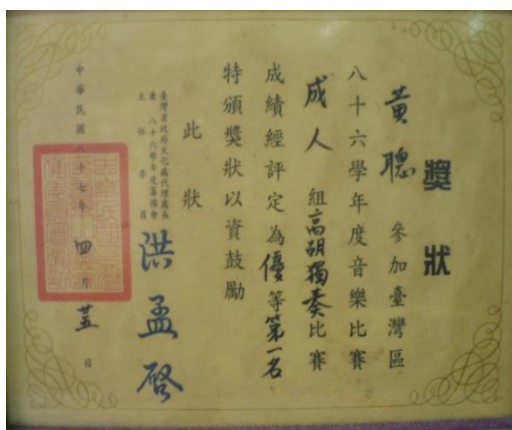 獎狀
黃聰 參加臺灣區
八十六學年度音樂比賽
成人組高胡獨奏比賽
成績經評定為優等第一名
特頒獎狀以資鼓勵
此狀
臺灣省政府文化處代理處長
兼八十六學年度籌備會
主任委員
洪孟啓
中華民國八十七年四月廿五日